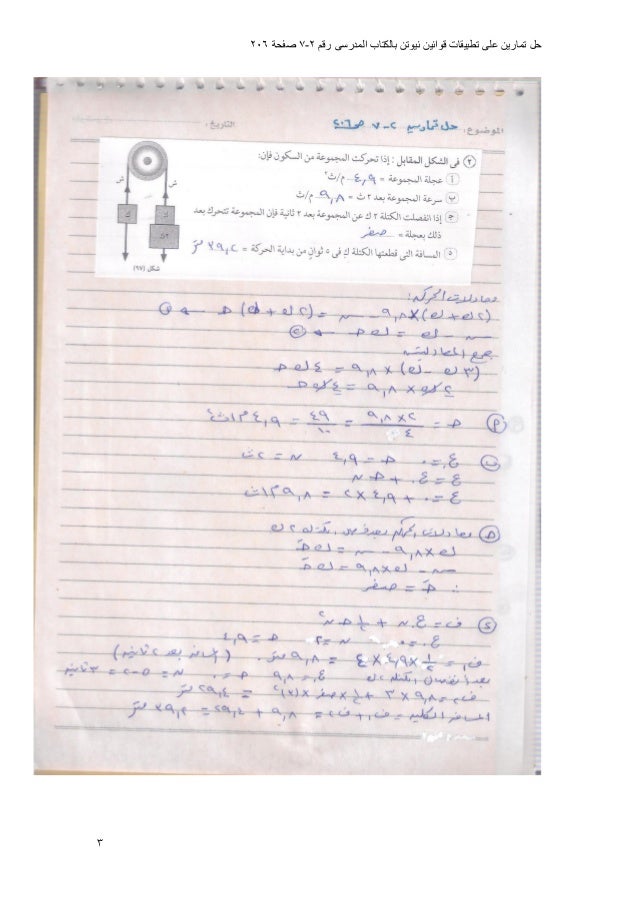 حل تمارين على تطبيقات قوانين نيوتن بالكتاب المدرسى رقم ٢-٧ صفحة ٢٠٦
الموضوع: حل تمارين ٢-٧ ص٢٠٦ التاريخ:
٢ فى الشكل المقابل: إذا تحركت المجموعة من السكون فإن:
أ عجلة المجموعة = ٤,٩ م/ث٢
ب سرعة المجموعة بعد ٢ ث = ٩,٨ م/ث
ج إذا انفصلت الكتلة ٢ ك عن المجموعة بعد ٢ ثانية فإن المجموعة تتحرك بعد
ذلك بعجلة = صفر
د المسافة التى قطعتها الكتلة ك فى ٥ ثوانٍ من بداية الحركة = ٣٩,٢ متر
ش ش
ك ك
٢ك
شكل (٩٧)
معادلات الحركة:
(٢ك + ك) × ٩,٨ - س = (٢ك + ك) حـ ← ١
س - ك × ٩,٨ = ك حـ ← ٢
بجمع المعادلتين
(٣ك - ك) × ٩,٨ = ٤ ك حـ
٢ك × ٩,٨ = ٤ك حـ
أ حـ = ٢×٩,٨ / ٤ = ٤٩ / ١٠ = ٤,٩ م/ث٢
ب ع. = ٠ حـ = ٤,٩ ن = ٢ث
ع = ع. + حـ ن
ع = ٠ + ٤,٩ × ٢ = ٩,٨ م/ث
ج معادلات الحركة بعد فصل الكتلة ٢ك
ك × ٩,٨ - س = ك حـَ
س - ك × ٩,٨ = ك حـَ
∴ حـَ = صفر
د ف = ع. ن + ١/٢ حـ ن٢
ع. = ٠ ن = ٢ حـ = ٤,٩
ف١ = ١/٢ × ٤,٩ × ٤ = ٩,٨ متر. (المسافة بعد ٢ ثانية)
بعد انفصال الكتلة ٢ك ع. = ٩,٨ حـ = ٠ ن = ٥ - ٢ = ٣ ثانية
ف٢ = ٩,٨ × ٣ + ١/٢ × صفر × (٣)٢ = ٢٩,٤ متر
المسافة الكلية = ف١ + ف٢ = ٩,٨ + ٢٩,٤ = ٣٩,٢ متر
٣